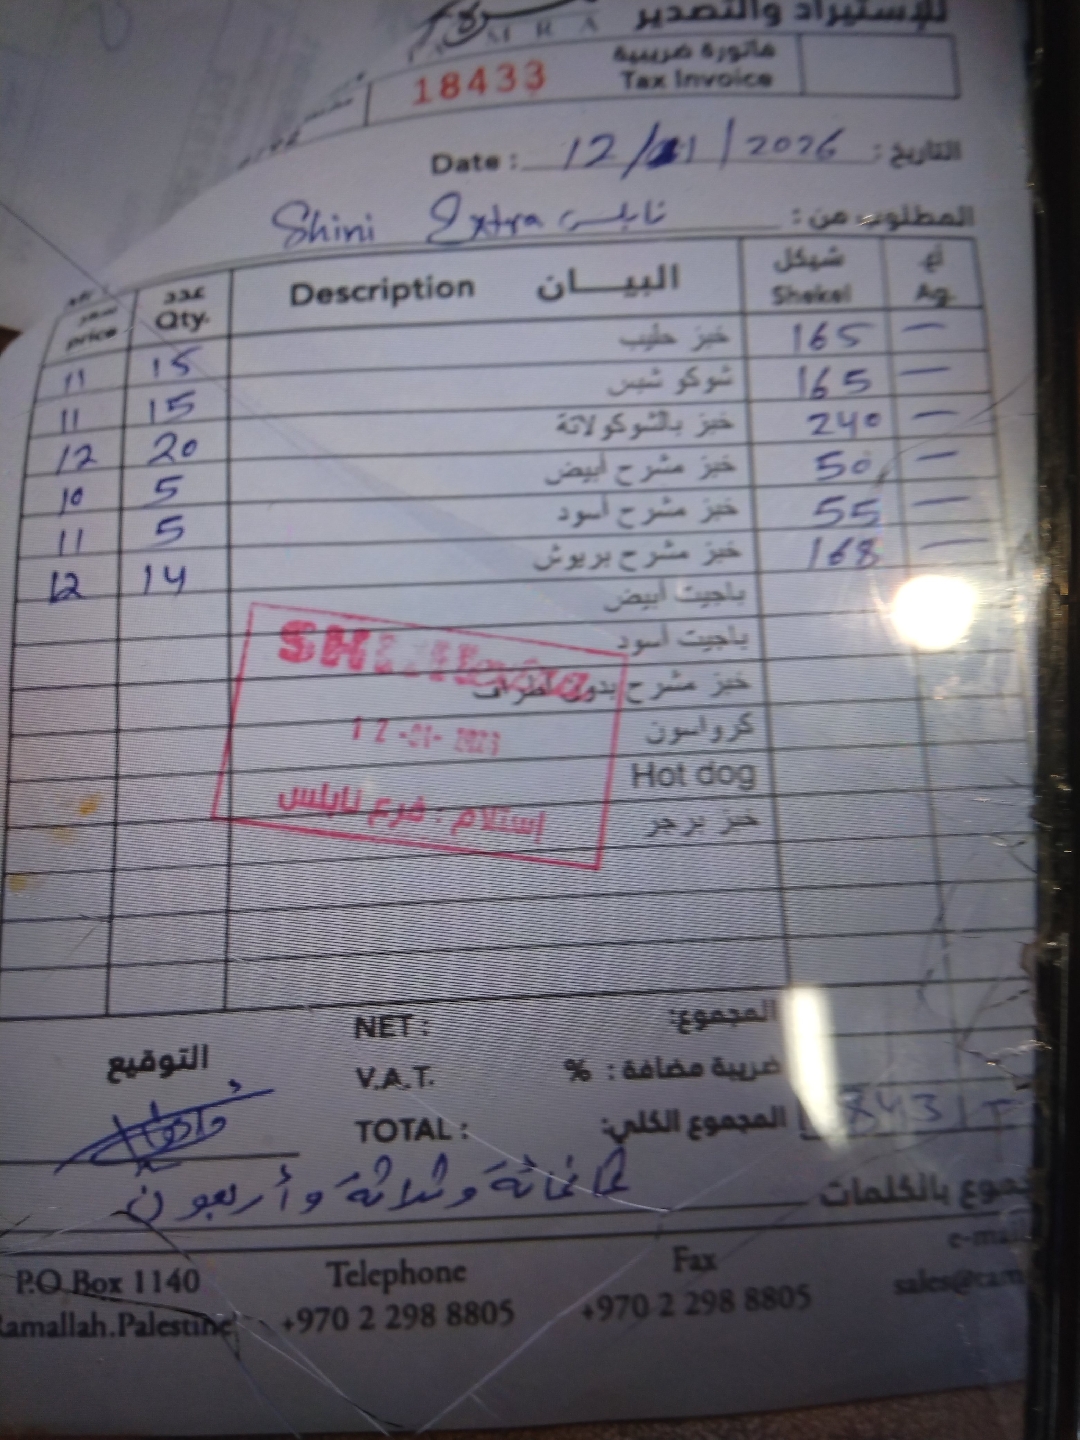 للإستيراد والتصدير
فاتورة ضريبية
Tax Invoice
18433
Date : 12/01/2026 التاريخ :
Shini Extra نابلس المطلوب من :
price سعر عدد Qty. Description البيـــان شيكل Shekel أغ Ag.
11 15 خبز حليب 165 —
11 15 شوكو شيس 165 —
12 20 خبز بالشوكولاتة 240 —
10 5 خبز مشرح أبيض 50 —
11 5 خبز مشرح أسود 55 —
12 14 خبز مشرح بريوش 168 —
باجيت أبيض
باجيت أسود
خبز مشرح بدون أطراف
كرواسون
Hot dog
خبز برجر
SH
12-01-
إستلام : فرع نابلس
NET : المجموع:
التوقيع
V.A.T. % ضريبة مضافة :
TOTAL : المجموع الكلي: 843
ثمانمائة وثلاثة وأربعون جموع بالكلمات
P.O. Box 1140 Telephone Fax e-mail
Ramallah.Palestine +970 2 298 8805 +970 2 298 8805